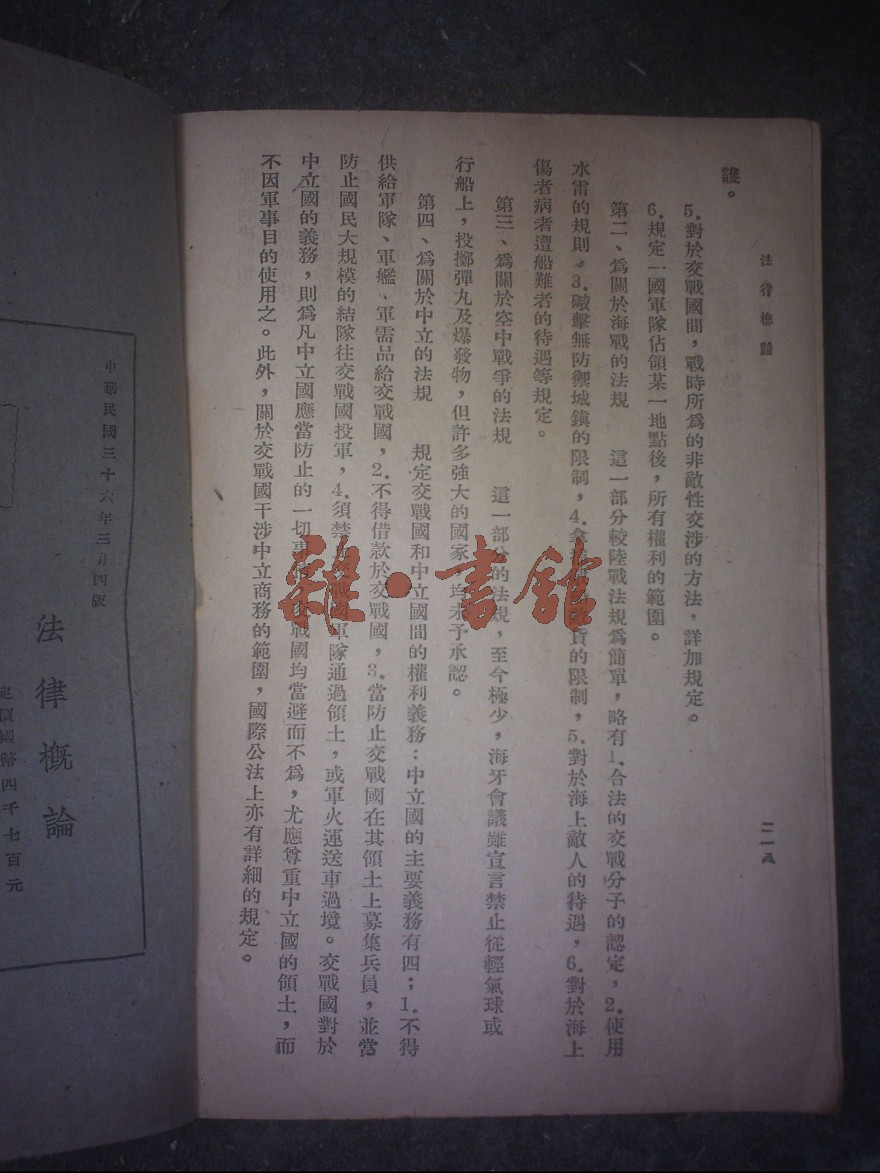 法律概論
二一八
護。
5.對於交戰國間，戰時所爲的非敵性交涉的方法，詳加規定。
6.規定一國軍隊佔領某一地點後，所有權利的範圍。
第二、爲關於海戰的法規　這一部分較陸戰法規爲簡單，略有1.合法的交戰分子的認定，2.使用
水雷的規則，3.礮擊無防禦城鎮的限制，4.拿捕貨的限制，5.對於海上敵人的待遇，6.對於海上
傷者病者遭船難者的待遇等規定。
第三、爲關於空中戰爭的法規　這一部分的法規，至今極少，海牙會議雖宣言禁止從輕氣球或
行船上，投擲彈丸及爆發物，但許多強大的國家，均未予承認。
第四、爲關於中立的法規　規定交戰國和中立國間的權利義務：中立國的主要義務有四；1.不得
供給軍隊、軍艦、軍需品給交戰國，2.不得借款於交戰國，3.當防止交戰國在其領土上募集兵員，並當
防止國民大規模的結隊往交戰國投軍，4.須禁止交戰國軍隊通過領土，或軍火運送車過境。交戰國對於
中立國的義務，則爲凡中立國應當防止的一切事，交戰國均當避而不爲，尤應尊重中立國的領土，而
不因軍事目的使用之。此外，關於交戰國干涉中立商務的範圍，國際公法上亦有詳細的規定。
中華民國三十六年三月四版
法律概論
定價國幣四千七百元
雜·書館